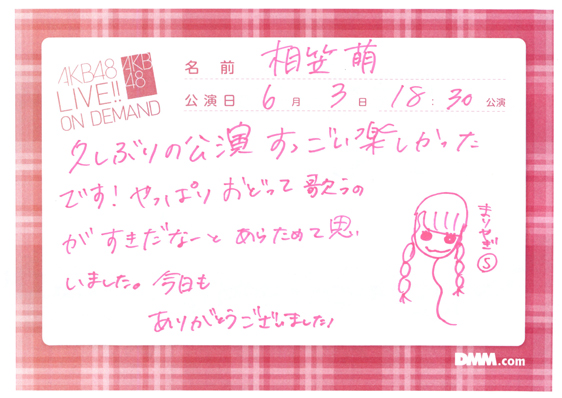 AKB48
LIVE!!
ON DEMAND
AKB
48
名前 相笠萌
公演日 6月 3日 18:30 公演
久しぶりの公演 すっごい楽しかった
です! やっぱり おどって 歌うの
が すきだなーと あらためて 思い
いました。今日も
ありがとうございました!
まりやぎ
S
DMM.com